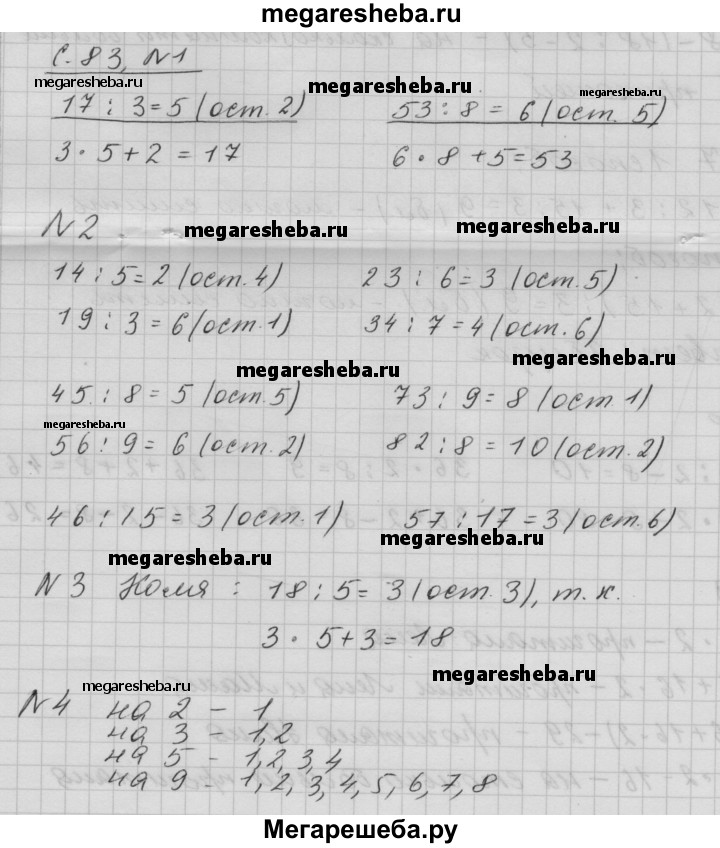 megaresheba.ru
С. 83, N1
megaresheba.ru megaresheba.ru megaresheba.ru
17 : 3 = 5 (ост. 2) 53 : 8 = 6 (ост. 5)
3 · 5 + 2 = 17 6 · 8 + 5 = 53
N2 megaresheba.ru megaresheba.ru
14 : 5 = 2 (ост. 4) 23 : 6 = 3 (ост. 5)
19 : 3 = 6 (ост. 1) 34 : 7 = 4 (ост. 6)
megaresheba.ru megaresheba.ru
45 : 8 = 5 (ост. 5) 73 : 9 = 8 (ост. 1)
megaresheba.ru
56 : 9 = 6 (ост. 2) 82 : 8 = 10 (ост. 2)
46 : 15 = 3 (ост. 1) 57 : 17 = 3 (ост. 6)
megaresheba.ru megaresheba.ru
N3 Коля : 18 : 5 = 3 (ост. 3), т. к.
3 · 5 + 3 = 18
megaresheba.ru megaresheba.ru
N4 на 2 - 1
на 3 - 1,2
на 5 - 1, 2, 3, 4
на 9 - 1, 2, 3, 4, 5, 6, 7, 8
Мегарешеба.ру